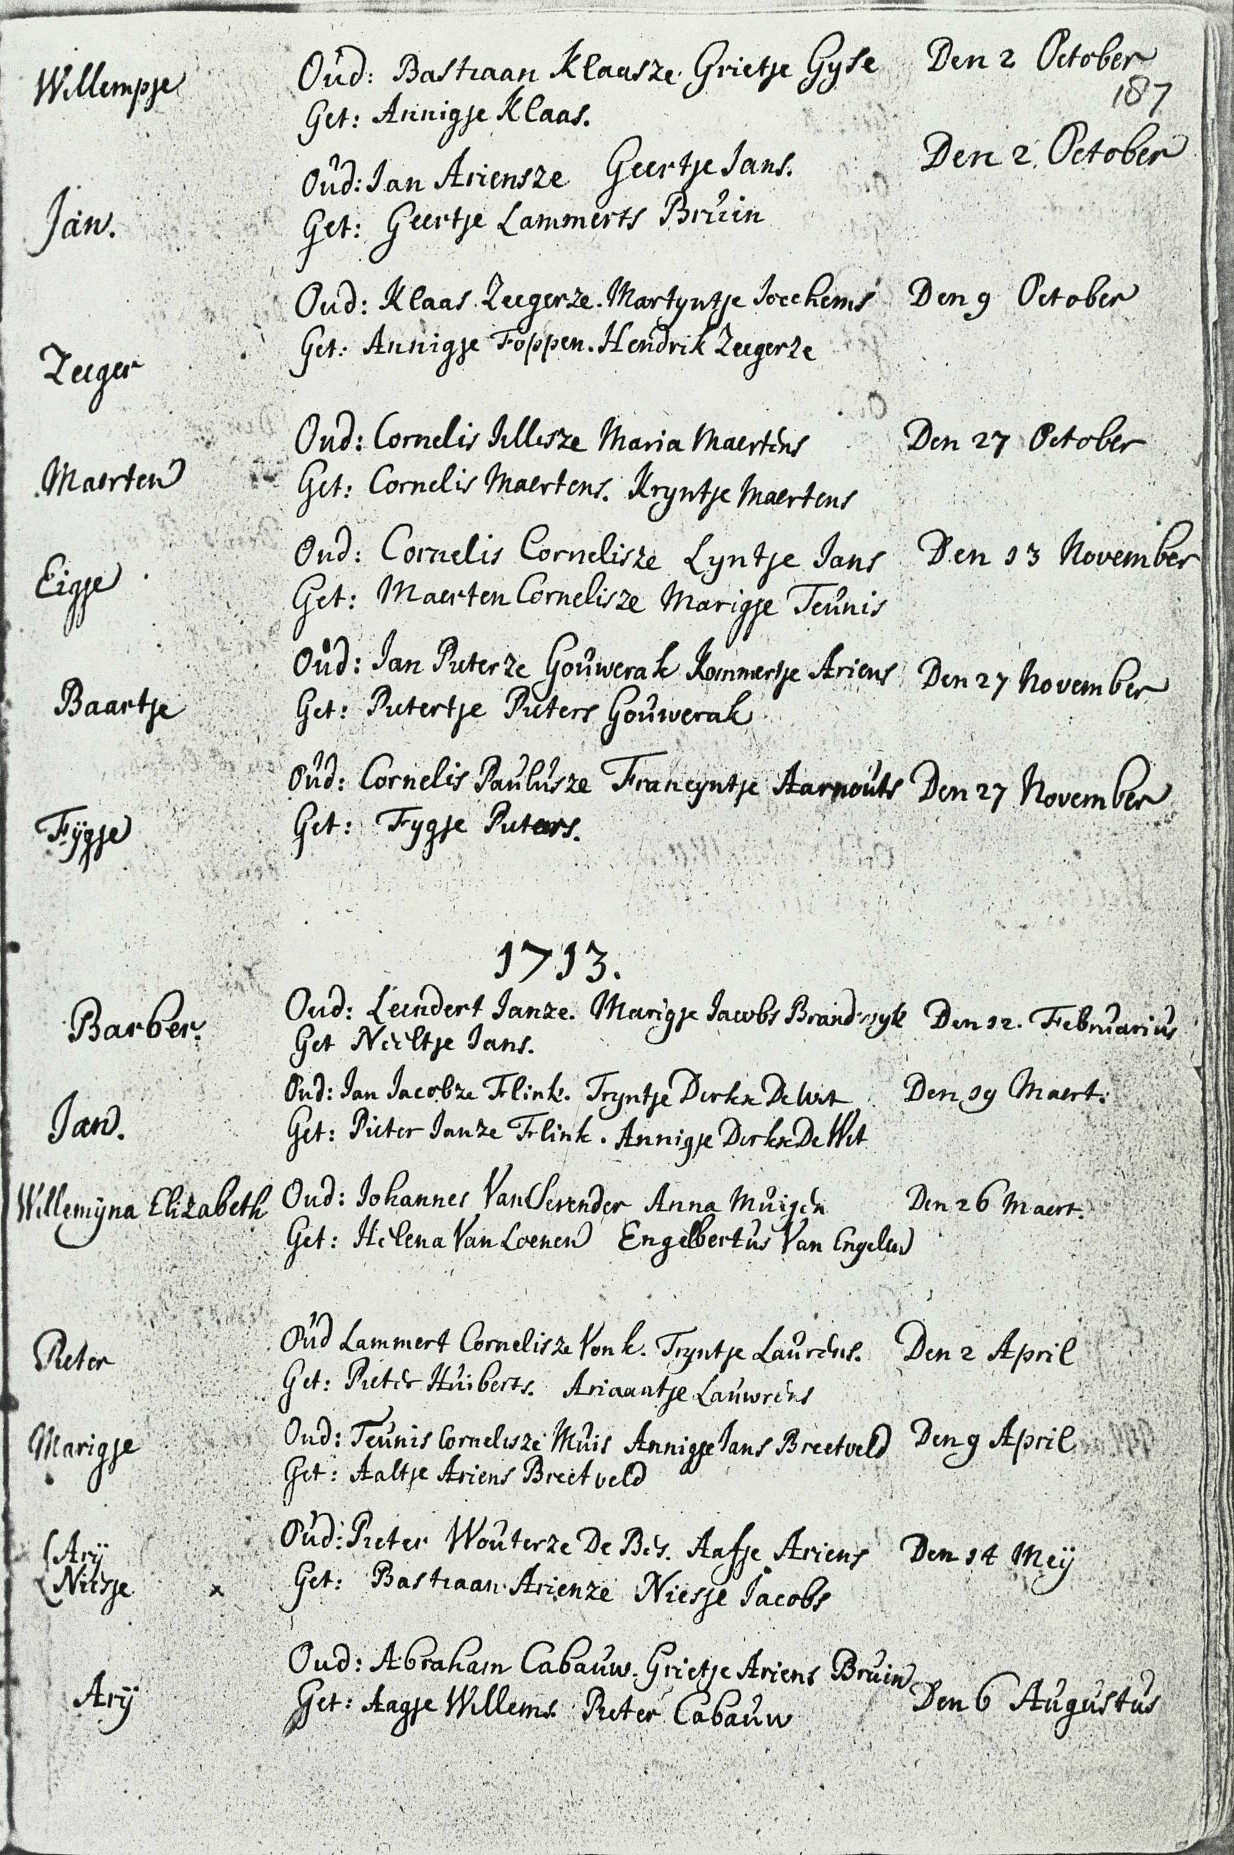 Willempje Oud: Bastiaan Klaasze. Grietje Gyse Den 2 October
187
Get: Annigje Klaas.
Jan. Oud: Jan Ariensze Geertje Jans. Den 2 October
Get: Geertje Lammerts Bruin
Zeeger Oud: Klaas Zeegerze. Martyntje Jochems Den 9 October
Get: Annigje Foppen. Hendrik Zeegerze
Maerten Oud: Cornelis Jillisze Maria Maertens Den 27 October
Get: Cornelis Maertens. Kryntje Maertens
Eigje Oud: Cornelis Cornelisze Lyntje Jans Den 13 November
Get: Maerten Cornelisze Marigje Teunis
Baartje Oud: Jan Pieterze Gouwerak Kommertje Ariens Den 27 November
Get: Pietertje Pieters Gouwerak
Fÿgje Oud: Cornelis Paulusze Francyntje Aarnouts Den 27 November
Get: Fygje Pieters.
1713.
Barber. Oud: Leendert Janze. Marigje Jacobs Brandwyk Den 12. Februarius
Get Neeltje Jans.
Jan. Oud: Jan Jacobze Flink. Tryntje Dirkse De Wit Den 19 Maert.
Get: Pieter Janze Flink. Annigje Dirkse De Wit
Willemÿna Elizabeth Oud: Johannes Van Anna Muisen Den 26 Maert.
Get: Helena Van Loenen Engelbertus Van Engelen
Pieter Oud Lammert Cornelisze Vonk. Tryntje Laurens. Den 2 April
Get: Pieter Huiberts. Ariaantje Lauwrens
Marigje Oud: Teunis Cornelisze Muis Annigje Jans Breetveld Den 9 April
Get: Aaltje Ariens Breetveld
Arÿ Oud: Pieter Wouterze De Bes. Aafje Ariens Den 14 Meÿ
Niesje x Get: Bastiaan Arienze Niesje Jacobs
Arÿ Oud: Abraham Cabauw. Grietje Ariens Bruin Den 6 Augustus
Get: Aagje Willems. Pieter Cabauw